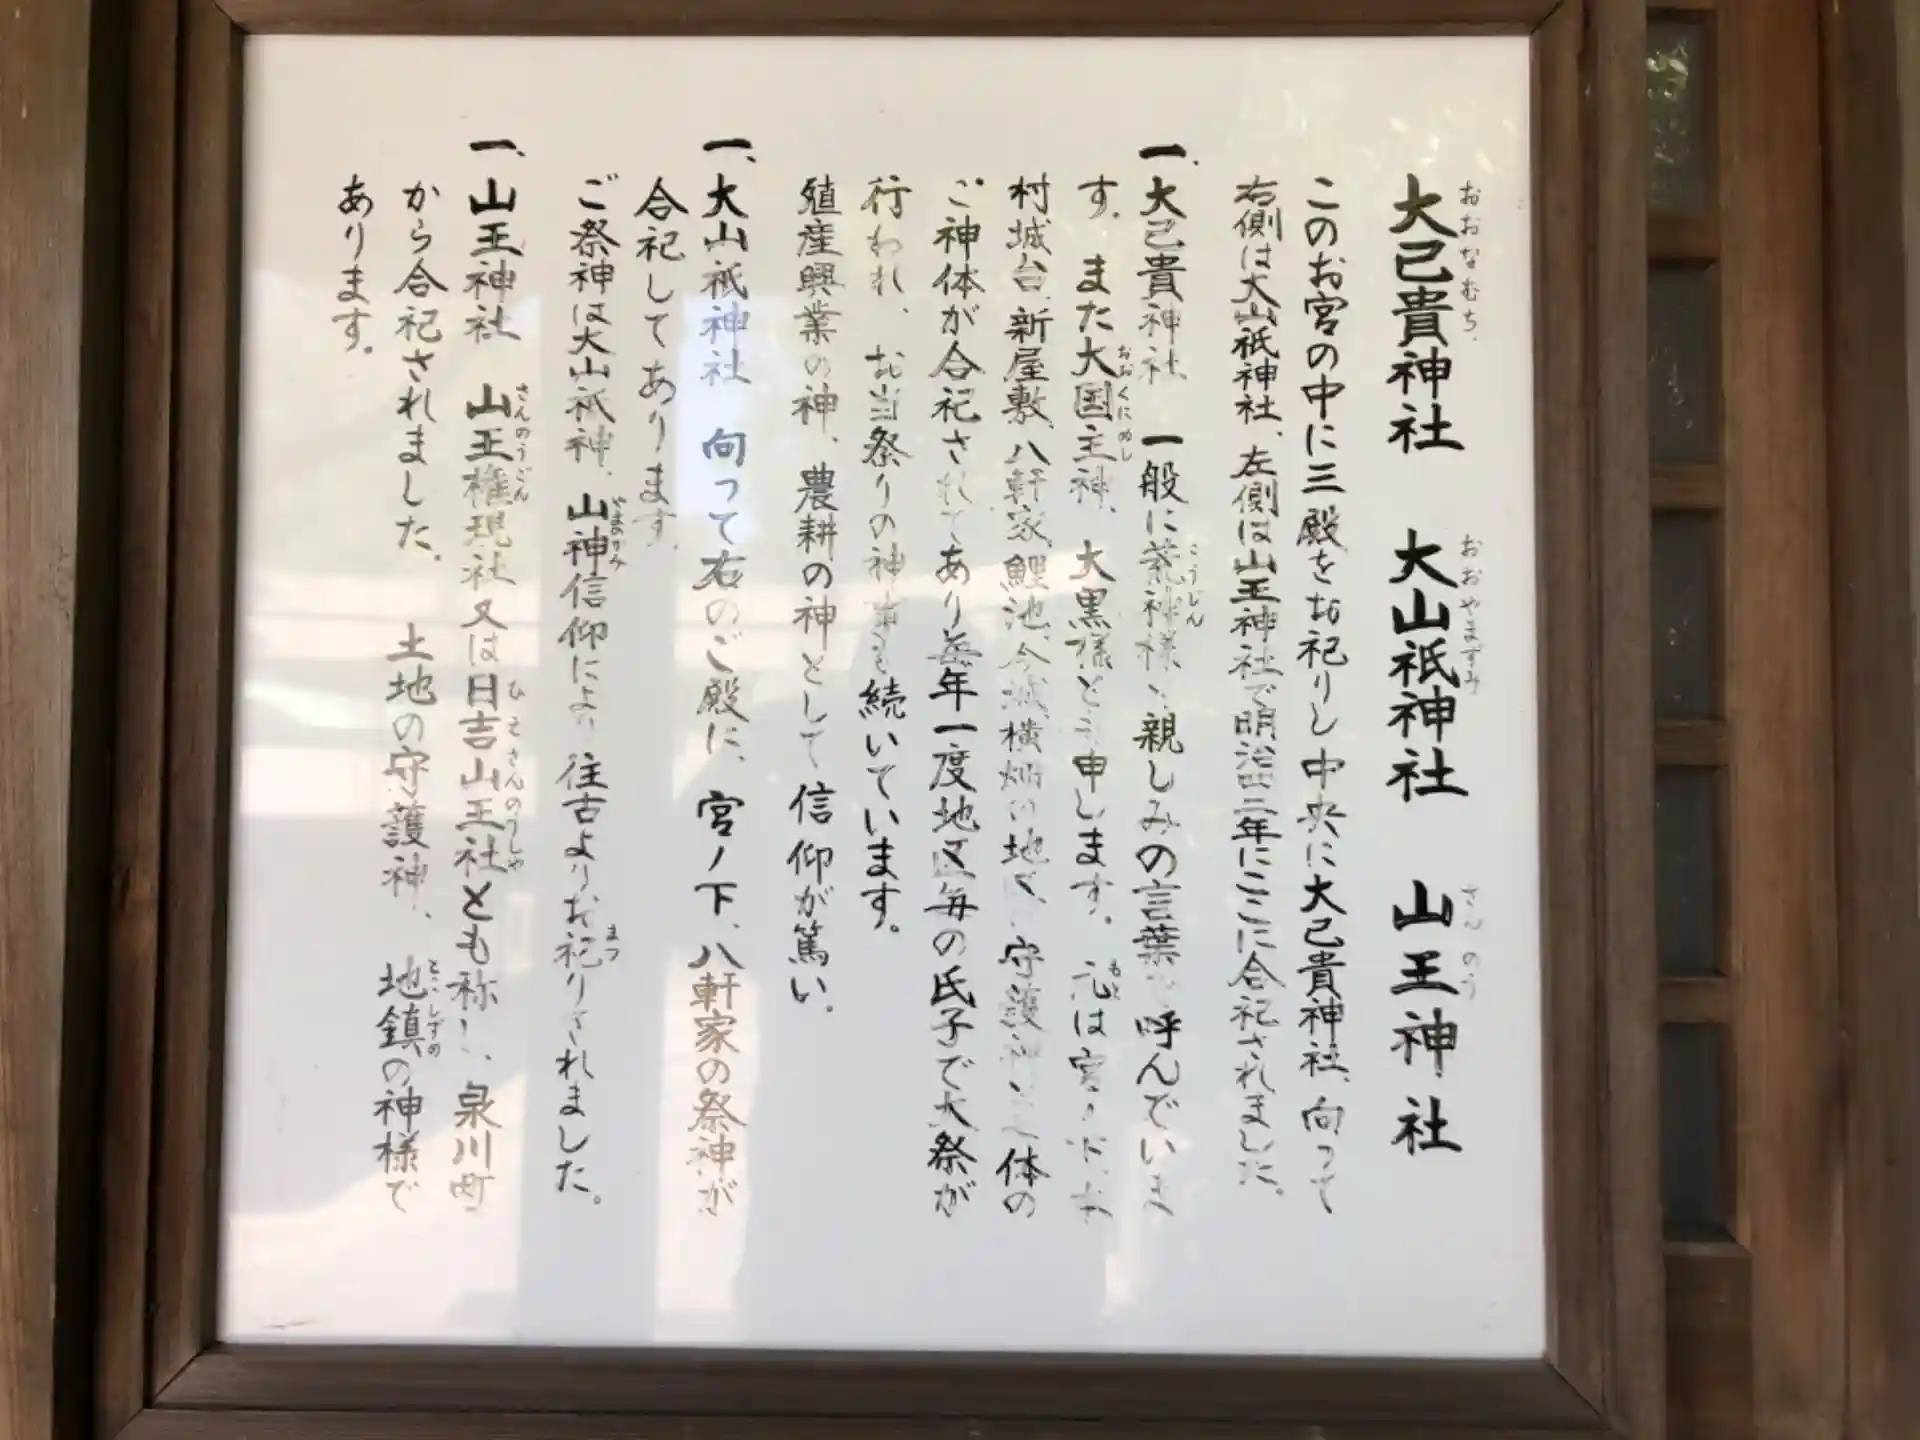 大己貴神社　大山祇神社　山王神社
このお宮の中に三殿をお祀りし中央に大己貴神社、向って
右側は大山祇神社、左側は山王神社で明治四二年にここに合祀されました。
一、大己貴神社　一般に荒神様と親しみの言葉で呼んでいま
す。また大国主神、大黒様とも申します。元は宮ノ下、
村城台、新屋敷、八軒家、鯉池、今城、横畑の地で、守護神 体の
ご神体が合祀されてあり毎年一度地区毎の氏子で大祭が
行われ、お当祭りの神事も続いています。
殖産興業の神、農耕の神として信仰が篤い。
一、大山祇神社　向って右のご殿に、宮ノ下、八軒家の祭神が
合祀してあります。
ご祭神は大山祇神、山神信仰により往古よりお祀りされました。
一、山王神社　山王権現社又は日吉山王社とも称し、泉川町
から合祀されました。土地の守護神、地鎮の神様で
あります。
おおなむち
おおやまずみ
さんのう
こうじん
おおくにぬし
もと
やまがみ
まつ
さんのうごん
ひえさんのうしゃ
とこしずの